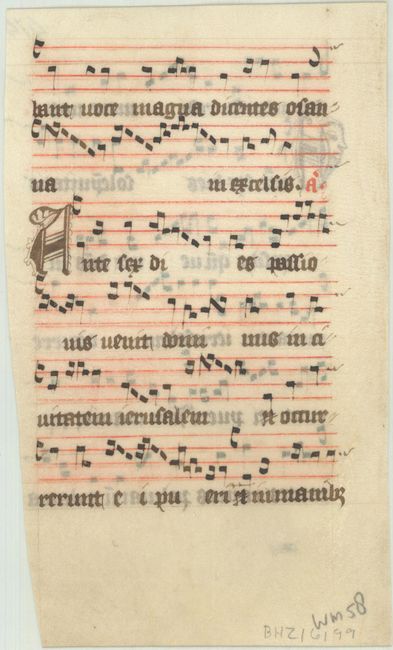 bant uoce magna dicentes osan
na in excelsis. A
Ante sex di es passio
nis uenit domi nus in ci
uitatem ierusalem et occur
rerunt e i pu eri et in manibz
WM58
BHZ1G199